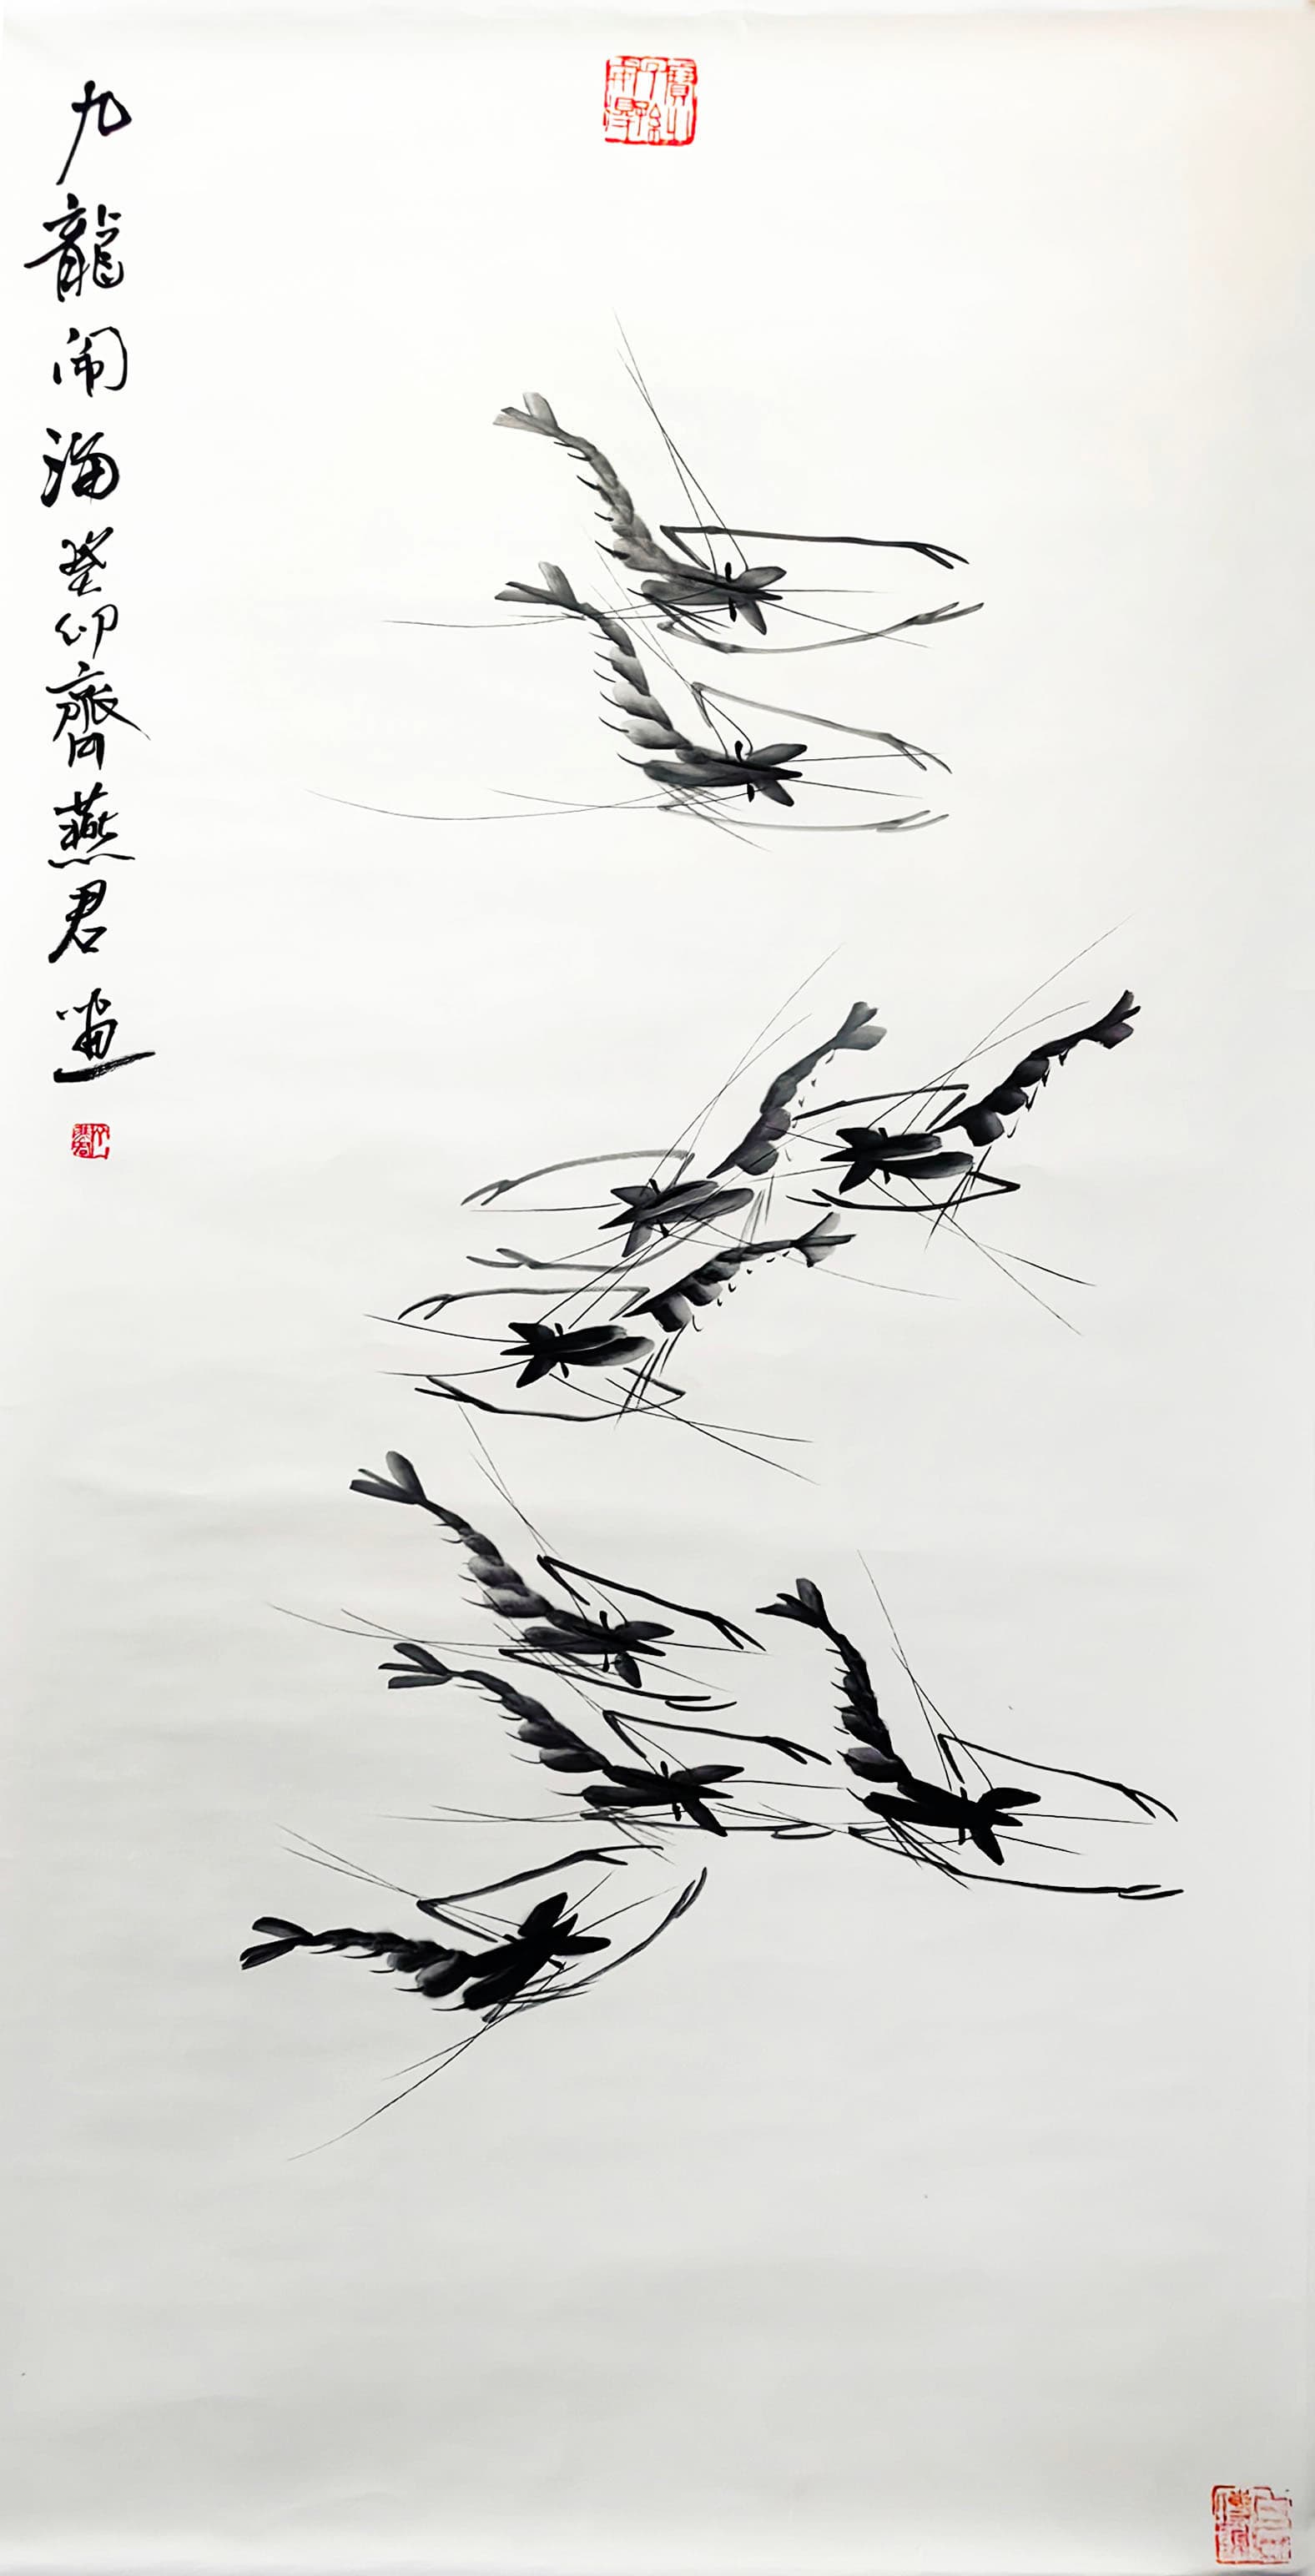 九龍闹海癸卯齊燕君畫